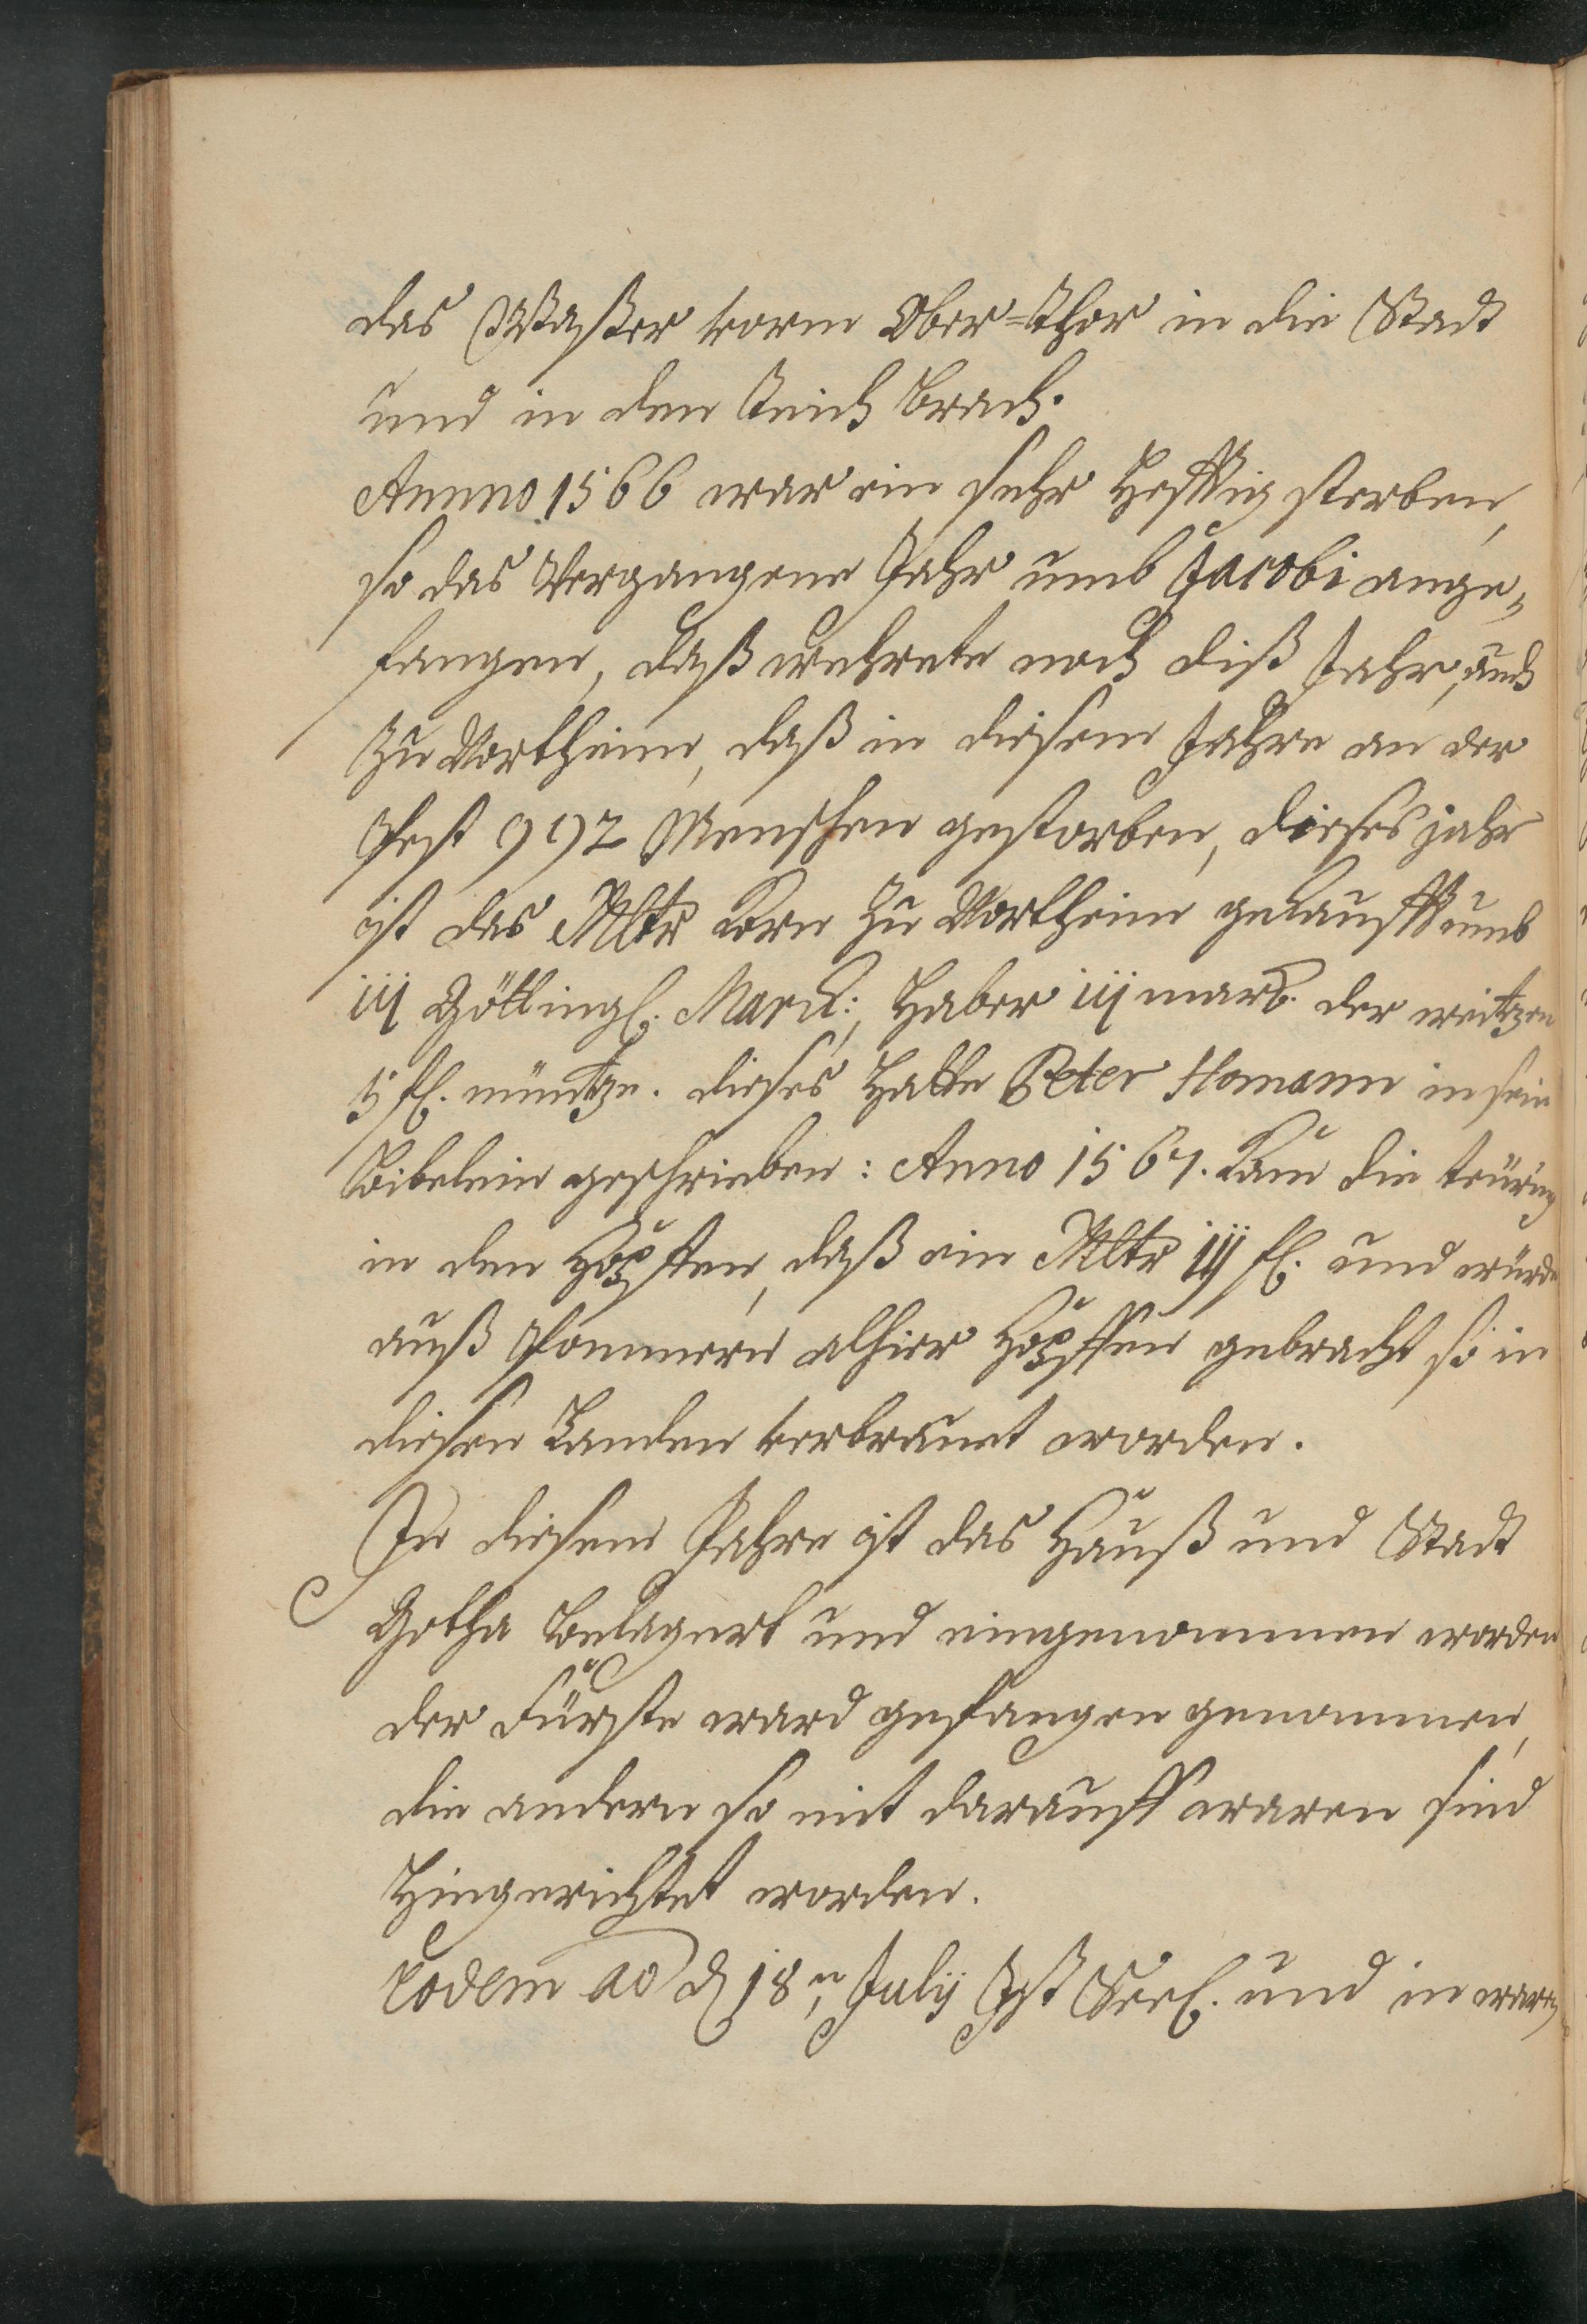 das Waßer vorm Ober=Thor in die Stadt
und in den Teich brach.
Annno 1566 war ein sehr Hefftig sterben,
so das Vergangene Jahr umb Jacobi ange„
fangen, daß wehrete noch diß Jahr, auch
Zu Northeim, daß in diesem Jahre an der
Pest 992 Menschen gestorben, dieses jahr
ist das Mltr Korn Zu Northeim gekaufft umb
iij Götting. Marck:, Haber iij mark. der weitzen
5 fl. müntze. dieses Hatte Peter Homann in sein
Bibelein geschrieben: Anno 1567. Kam die teürung
in den Hopffen, daß ein Mltr iij fl. und würde
auß Pommern alhier Hopffen gebracht so in
diesen Landen verbraunt worden.
In diesem Jahre ist das Hauß und Stadt
Gotha belagert und eingenommen worden
der Fürste ward gefangen genommen,
die andern so mit darauff waren sind
Hingerichtet worden.
Eodem ao d 18n Julij Ist Seel. und in